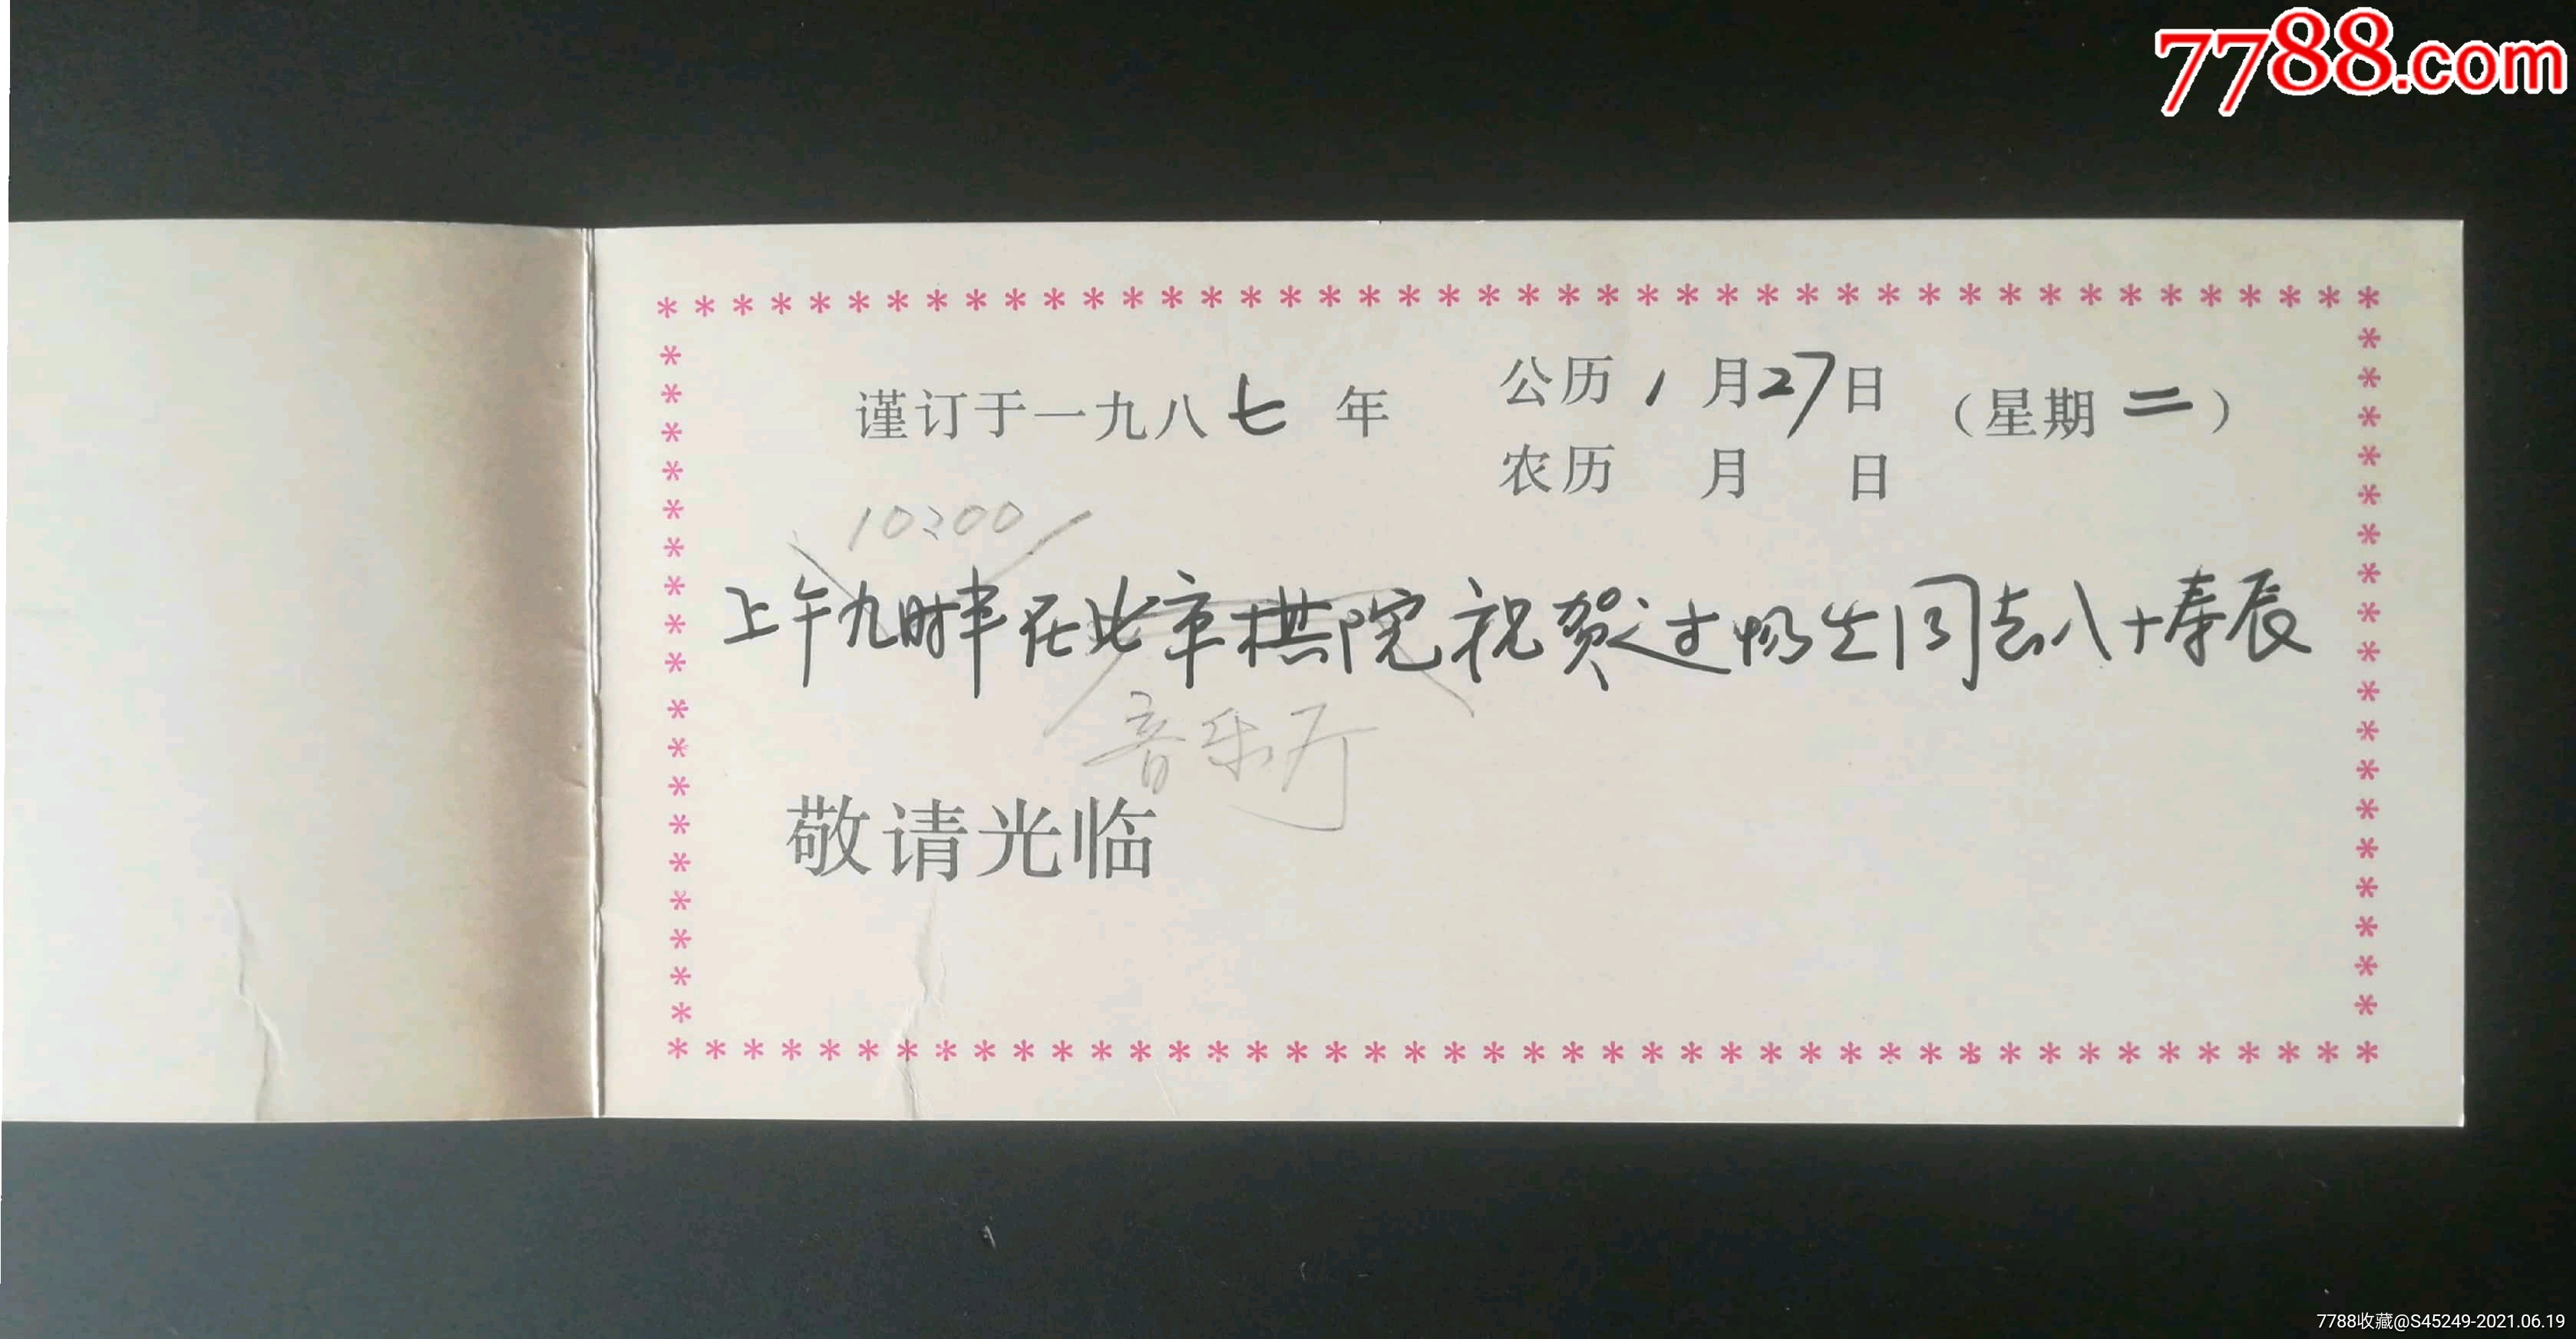 7788.com
谨订于一九八七年 公历1月27日 (星期二)
农历 月 日
10:00
上午九时半在北京棋院祝贺过惕生同志八十寿辰
音乐厅
敬请光临
7788收藏@S45249-2021.06.19